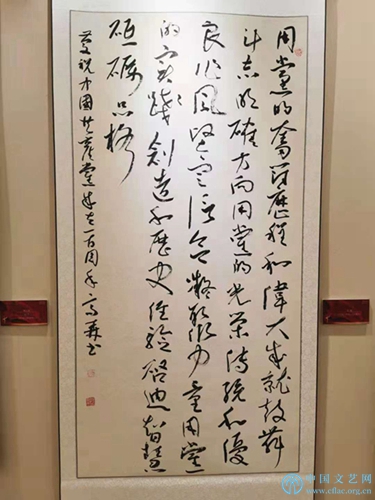 用黨的奮鬥歷程和偉大成就鼓舞
斗志明確方向用黨的光榮傳統和優
良作風堅定信念凝聚力量用黨
的實踐創造和歷史經驗啓迪智慧
砥礪品格
慶祝中國共產黨成立一百周年 書
中国文艺网
www.cflac.org.cn